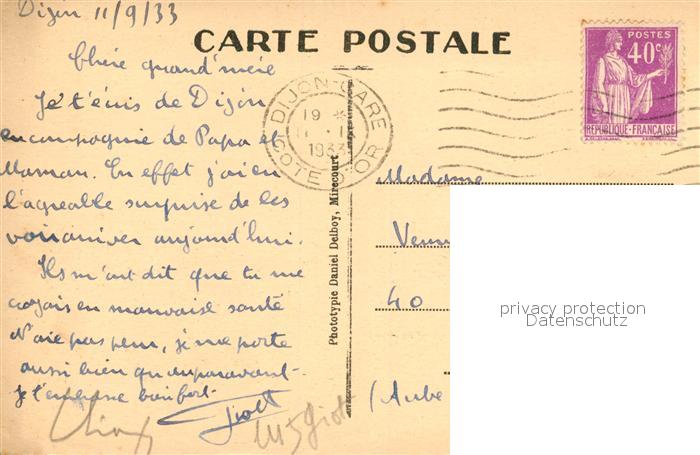 Dijon 11/9/33
CARTE POSTALE
POSTES
40c
REPUBLIQUE-FRANÇAISE
DIJON-GARE
19
1933
COTE D'OR
Chère grand'mère
Je t'écris de Dijon
en compagnie de Papa et
Maman. En effet j'ai eu
l'agréable surprise de les
voir arriver aujourd'hui.
Ils m'ont dit que tu me
croyais en mauvaise santé
N'aie pas peur, je me porte
aussi bien qu'auparavant.
Je t'embrasse bien fort.
Phototypie Daniel Delboy, Mirecourt
Madame
40
(Aube
privacy protection
Datenschutz